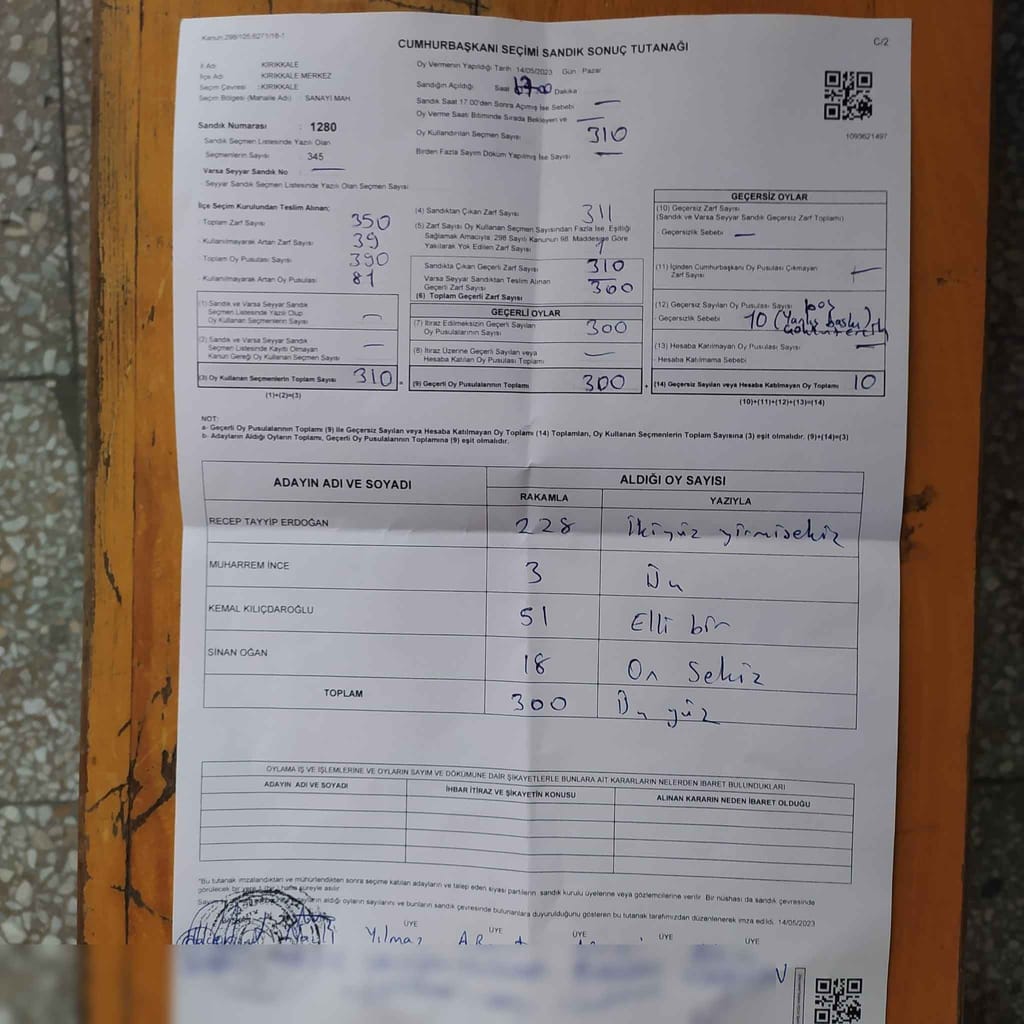 Kanun:298/105,6271/18-1
CUMHURBAŞKANI SEÇİMİ SANDIK SONUÇ TUTANAĞI
C/2
İl Adı : KIRIKKALE
İlçe Adı : KIRIKKALE MERKEZ
Seçim Çevresi : KIRIKKALE
Seçim Bölgesi (Mahalle Adı) : SANAYİ MAH.
Sandık Numarası : 1280
Sandık Seçmen Listesinde Yazılı Olan
Seçmenlerin Sayısı : 345
Varsa Seyyar Sandık No : —
Seyyar Sandık Seçmen Listesinde Yazılı Olan Seçmen Sayısı
Oy Vermenin Yapıldığı Tarih :14/05/2023 Gün : Pazar
Sandığın Açıldığı Saat 17.00 Dakika
Sandık Saat 17.00'den Sonra Açmış İse Sebebi —
Oy Verme Saati Bitiminde Sırada Bekleyen ve —
Oy Kullandırılan Seçmen Sayısı 310
Birden Fazla Sayım Döküm Yapılmış İse Sayısı —
1093621497
İlçe Seçim Kurulundan Teslim Alınan;
Toplam Zarf Sayısı 350
Kullanılmayarak Artan Zarf Sayısı 39
Toplam Oy Pusulası Sayısı 390
Kullanılmayarak Artan Oy Pusulası 81
(1) Sandık ve Varsa Seyyar Sandık
Seçmen Listesinde Yazılı Olup
Oy Kullanan Seçmenlerin Sayısı —
(2) Sandık ve Varsa Seyyar Sandık
Seçmen Listesinde Kayıtlı Olmayan
Kanun Gereği Oy Kullanan Seçmen Sayısı —
(3) Oy Kullanan Seçmenlerin Toplam Sayısı 310
(1)+(2)=(3)
(4) Sandıktan Çıkan Zarf Sayısı 311
(5) Zarf Sayısı Oy Kullanan Seçmen Sayısından Fazla İse, Eşitliği
Sağlamak Amacıyla, 298 Sayılı Kanunun 98. Maddesine Göre
Yakılarak Yok Edilen Zarf Sayısı 1
Sandıkta Çıkan Geçerli Zarf Sayısı 310
Varsa Seyyar Sandıktan Teslim Alınan
Geçerli Zarf Sayısı —
(6) Toplam Geçerli Zarf Sayısı 300
GEÇERLİ OYLAR
(7) İtiraz Edilmeksizin Geçerli Sayılan
Oy Pusulalarının Sayısı 300
(8) İtiraz Üzerine Geçerli Sayılan veya
Hesaba Katılan Oy Pusulası Toplamı —
(9) Geçerli Oy Pusulalarının Toplamı 300
GEÇERSİZ OYLAR
(10) Geçersiz Zarf Sayısı
(Sandık ve Varsa Seyyar Sandık Geçersiz Zarf Toplamı)
Geçersizlik Sebebi —
(11) İçinden Cumhurbaşkanı Oy Pusulası Çıkmayan
Zarf Sayısı
(12) Geçersiz Sayılan Oy Pusulası Sayısı boş
Geçersizlik Sebebi 10
(13) Hesaba Katılmayan Oy Pusulası Sayısı —
Hesaba Katılmama Sebebi
(14) Geçersiz Sayılan veya Hesaba Katılmayan Oy Toplamı 10
(10)+(11)+(12)+(13)=(14)
NOT:
a- Geçerli Oy Pusulalarının Toplamı (9) ile Geçersiz Sayılan veya Hesaba Katılmayan Oy Toplamı (14) Toplamları, Oy Kullanan Seçmenlerin Toplam Sayısına (3) eşit olmalıdır. (9)+(14)=(3)
b- Adayların Aldığı Oyların Toplamı, Geçerli Oy Pusulalarının Toplamına (9) eşit olmalıdır.
ADAYIN ADI VE SOYADI ALDIĞI OY SAYISI
RAKAMLA YAZIYLA
RECEP TAYYİP ERDOĞAN 228 İkiyüz yirmisekiz
MUHARREM İNCE 3 Üç
KEMAL KILIÇDAROĞLU 51 Elli bir
SİNAN OĞAN 18 On Sekiz
TOPLAM 300 Üç yüz
OYLAMA İŞ VE İŞLEMLERİNE VE OYLARIN SAYIM VE DÖKÜMÜNE DAİR ŞİKAYETLERLE BUNLARA AİT KARARLARIN NELERDEN İBARET BULUNDUKLARI
ADAYIN ADI VE SOYADI İHBAR İTİRAZ VE ŞİKAYETİN KONUSU ALINAN KARARIN NEDEN İBARET OLDUĞU
"Bu tutanak imzalandıktan ve mühürlendikten sonra seçime katılan adayların ve talep eden siyasi partilerin, sandık kurulu üyelerine veya gözlemcilerine verilir. Bir nüshası da sandık çevresinde
görülecek bir yere 1 (bir) hafta süreyle asılır.
aldığı oyların sayılarını ve bunların sandık çevresinde bulunanlara duyurulduğunu gösteren bu tutanak tarafımızdan düzenlenerek imza edildi. 14/05/2023
ÜYE ÜYE ÜYE ÜYE ÜYE
Yılmaz